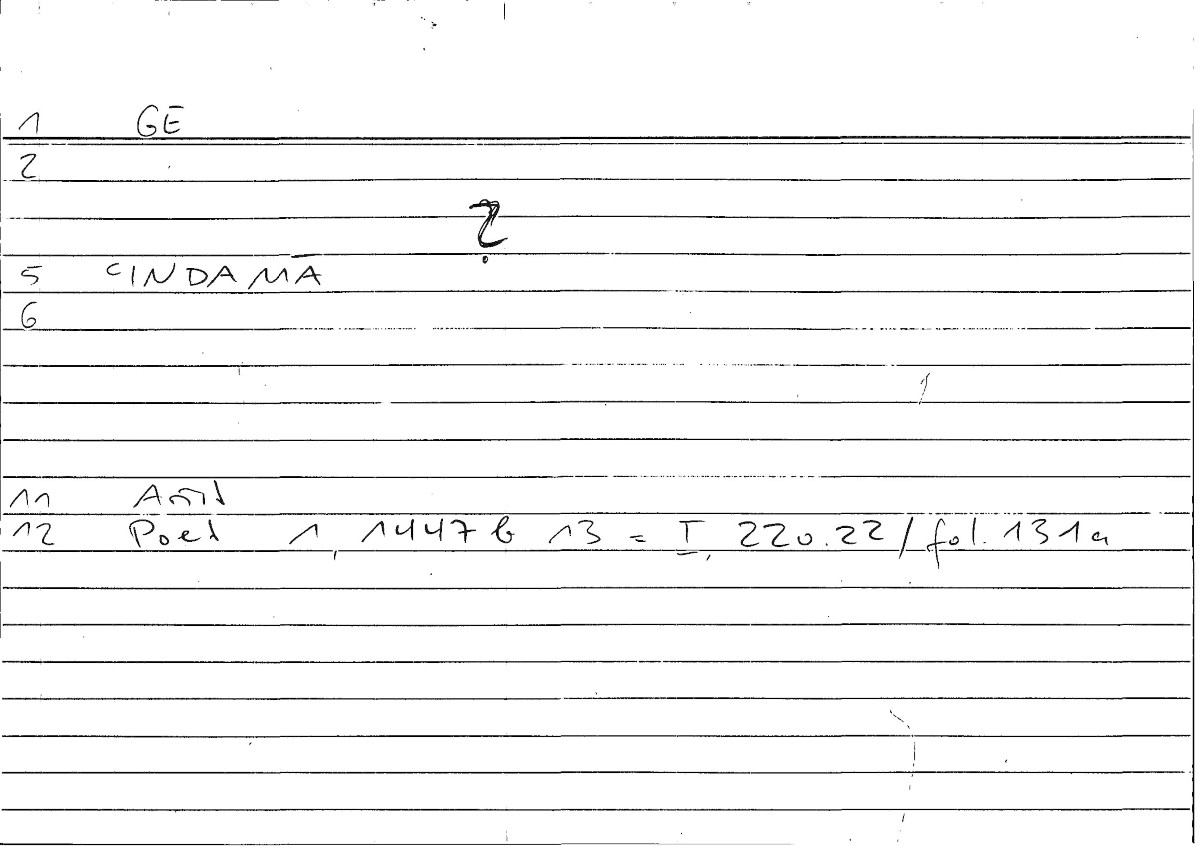 1 GE
2
?
5 ʿINDAMĀ
6
11 Arist
12 Poet 1, 1447 b 13 = I, 220.22 / fol. 131a